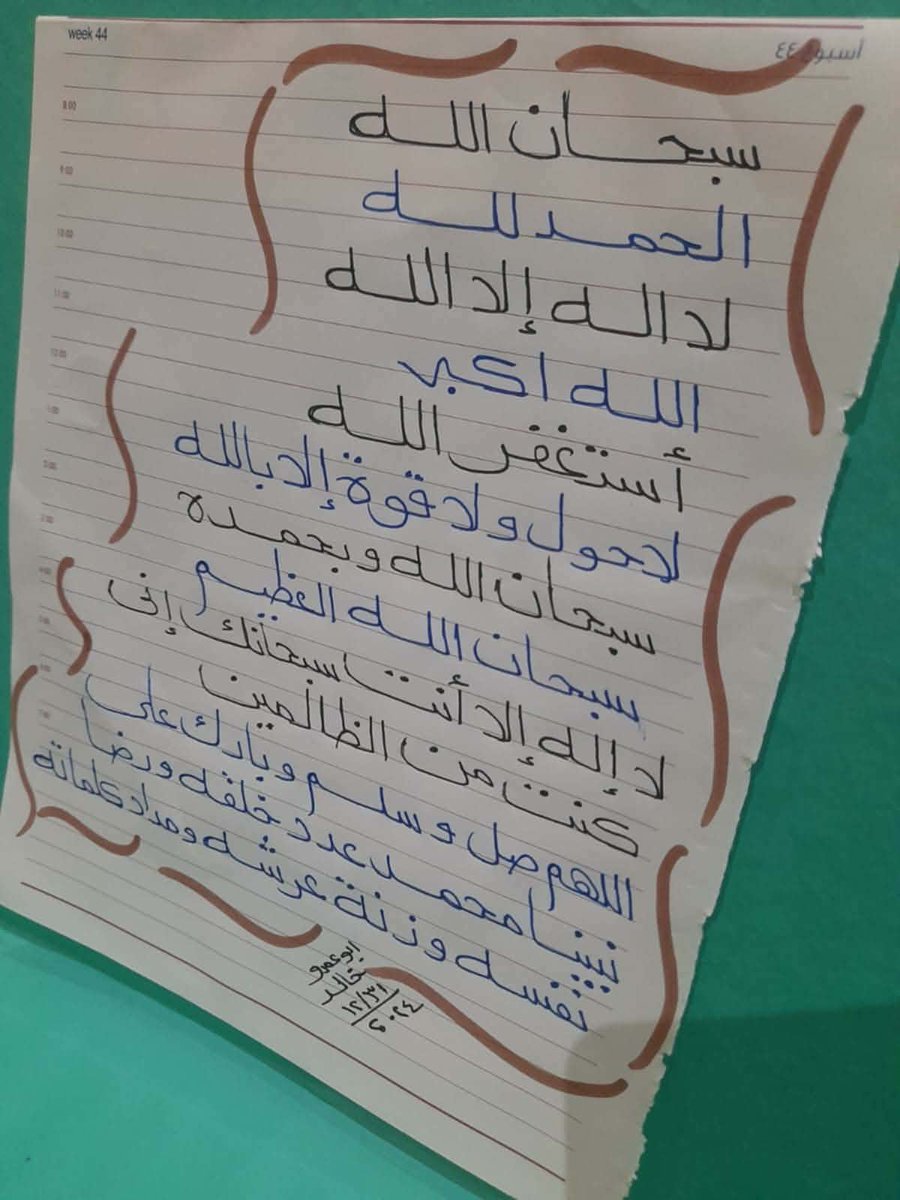 week 44
أسبوع ٤٤
8:00
9:00
10:00
11:00
12:00
سبحان الله
الحمد لله
لا اله إلا الله
الله اكبر
أستغفر الله
لا حول ولا قوة إلا بالله
سبحان الله وبحمده
سبحان الله العظيم
لا إله إلا أنت سبحانك إنى
كنت من الظالمين
اللهم صل وسلم وبارك على
نبينا محمد عدد خلقه ورضا
نفسه وزنة عرشه ومداد كلماته
ابو عمر
خالد